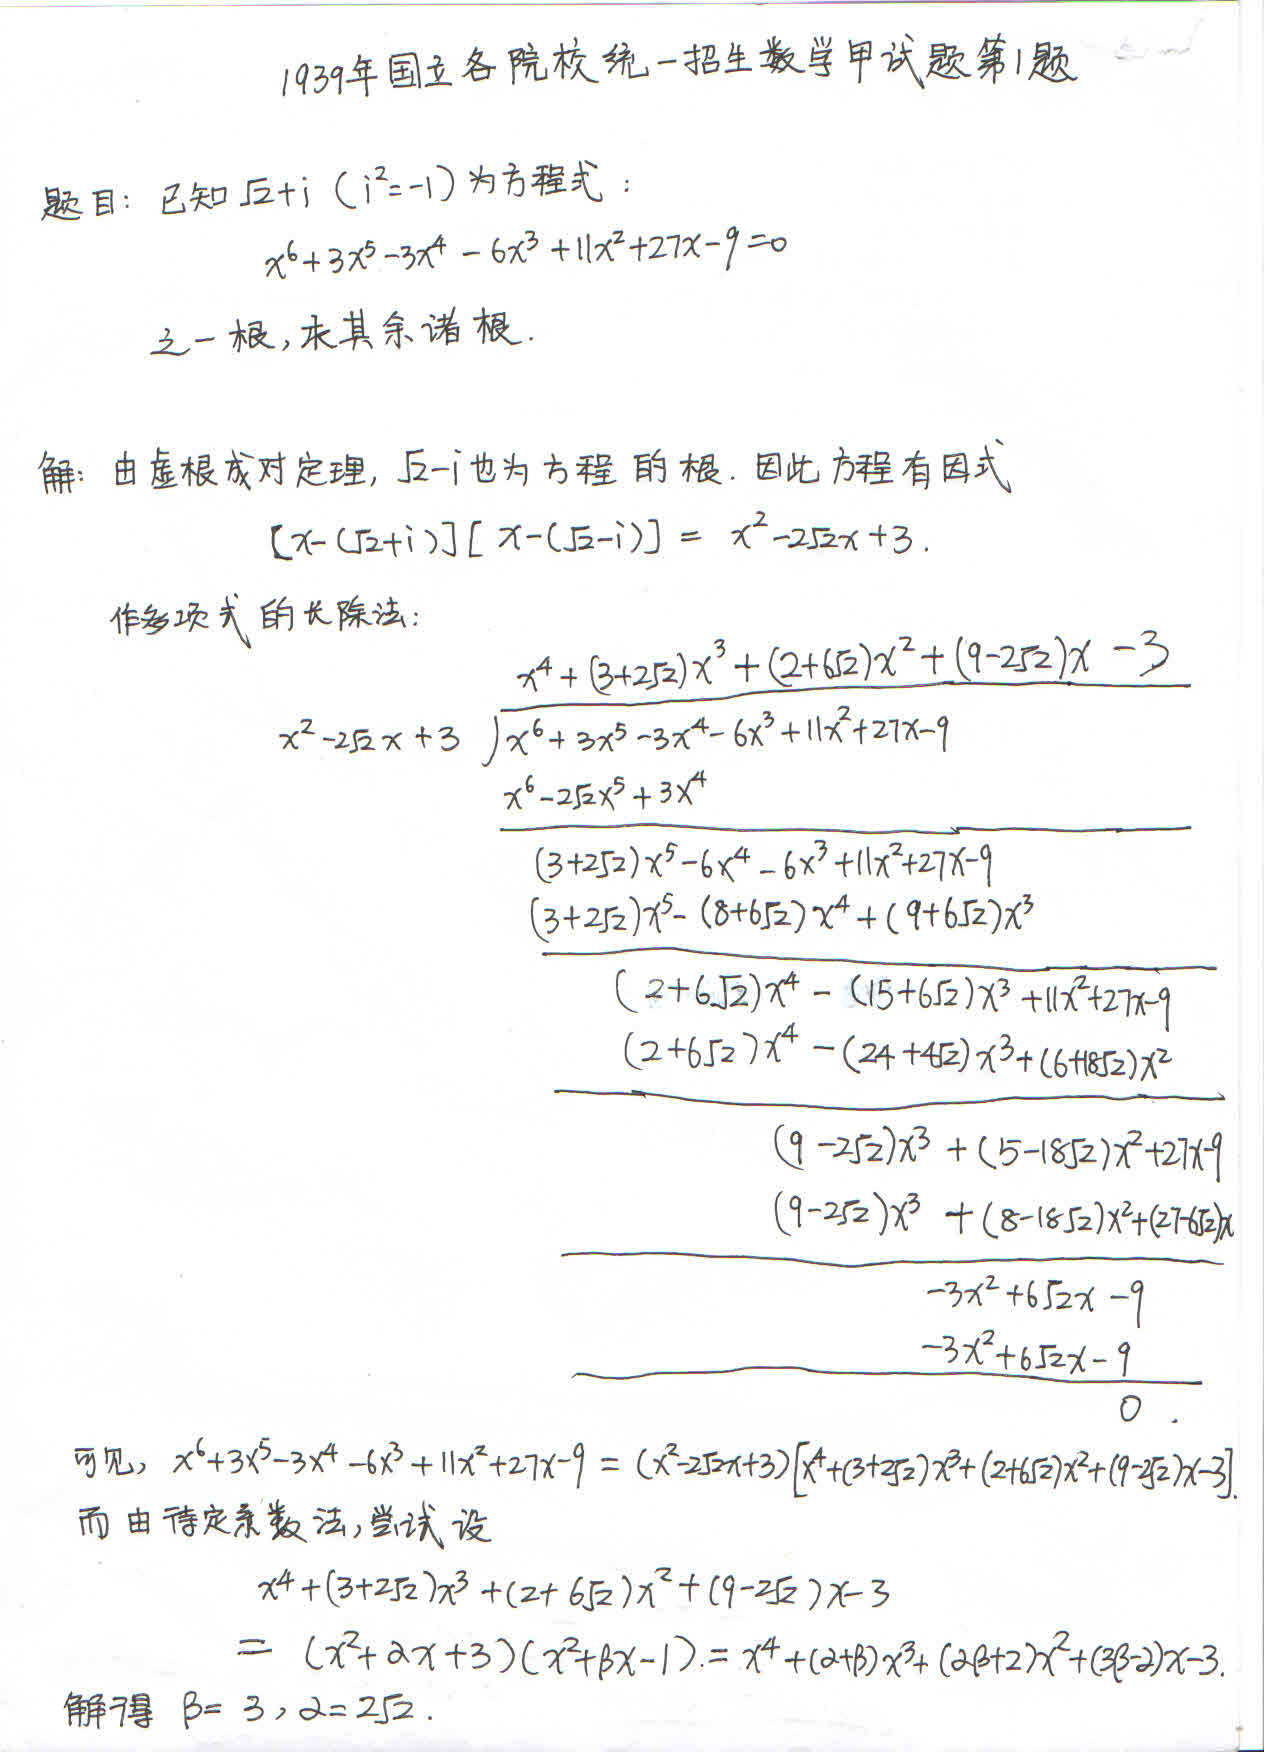 1939年国立各院校统一招生数学甲试题第1题
题目: 已知√2+i (i²=-1) 为方程式:
x⁶+3x⁵-3x⁴-6x³+11x²+27x-9=0
之一根,求其余诸根.
解: 由虚根成对定理, √2-i也为方程的根. 因此方程有因式
[x-(√2+i)][x-(√2-i)] = x²-2√2x+3.
作多项式的长除法:
x⁴+(3+2√2)x³+(2+6√2)x²+(9-2√2)x-3
x²-2√2x+3 ) x⁶+3x⁵-3x⁴-6x³+11x²+27x-9
x⁶-2√2x⁵+3x⁴
(3+2√2)x⁵-6x⁴-6x³+11x²+27x-9
(3+2√2)x⁵-(8+6√2)x⁴+(9+6√2)x³
(2+6√2)x⁴-(15+6√2)x³+11x²+27x-9
(2+6√2)x⁴-(24+4√2)x³+(6+18√2)x²
(9-2√2)x³+(5-18√2)x²+27x-9
(9-2√2)x³+(8-18√2)x²+(27-6√2)x
-3x²+6√2x-9
-3x²+6√2x-9
0.
可见, x⁶+3x⁵-3x⁴-6x³+11x²+27x-9=(x²-2√2x+3)[x⁴+(3+2√2)x³+(2+6√2)x²+(9-2√2)x-3].
而由待定系数法,尝试设
x⁴+(3+2√2)x³+(2+6√2)x²+(9-2√2)x-3
=(x²+αx+3)(x²+βx-1).=x⁴+(α+β)x³+(αβ+2)x²+(3β-α)x-3.
解得 β=3, α=2√2.